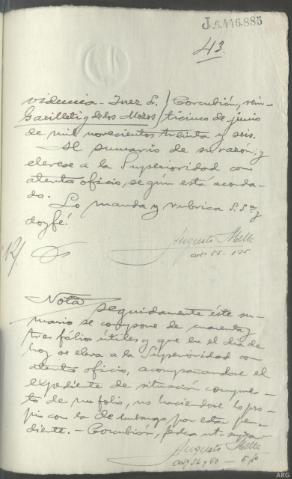 J.6.446.885
43.
videncia - Juez S. / Corcubión, vein-
Gacilleti y delos Mozos / ticinco de junio
de mil novecientos treinta y seis.
Al sumario de su razón, y
elevese a la Superioridad con
atento oficio, según está acorda-
do.
Lo manda y rubrica S.Sª y
doy fé.
Augusto
Nota
Seguidamente éste su-
mario se compone de cuarenta y
tres folios útiles y que en el dia de
hoy se eleva a la Superioridad con
atento oficio, acompañandose el
expediente de situación compues-
to de un folio, no haciendose lo pro-
pio con la de embargo por estar pen-
diente. - Corcubión, fecha ut supra
Augusto
ARG